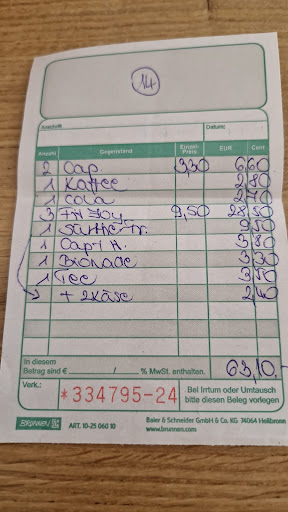 14
Anschrift: Datum:
Anzahl Gegenstand Einzel-Preis EUR Cent
2 Cap. 3,30 6,60
1 Kaffee 2,80
1 Cola 2,70
3 9,50 28,50
1 9,50
1 Cap+ H. 3,80
1 Bionade 3,30
1 Tee 3,50
+ 2 Käse 2,40
In diesem
Betrag sind € / % MwSt. enthalten. 63,10
Verk.: *334795-24 Bei Irrtum oder Umtausch
bitte diesen Beleg vorlegen
BRUNNEN ART. 10-25 060 10 Baier & Schneider GmbH & Co. KG 74064 Heilbronn
www.brunnen.com